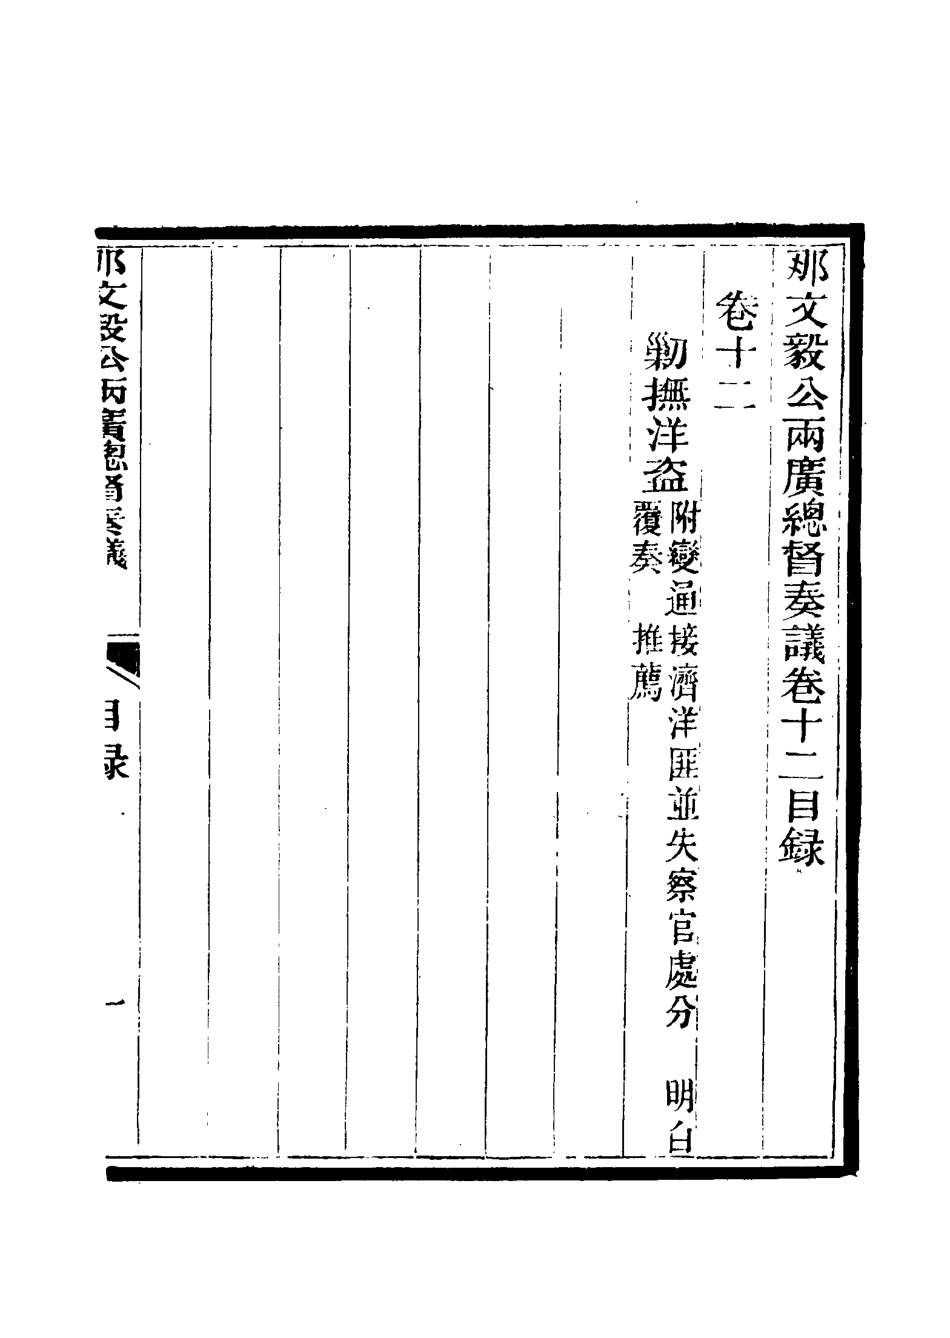 那文毅公兩廣總督奏議卷十二目録
卷十二
勦撫洋盜
附變通接濟洋匪並失察官處分　明白
覆奏　推薦
那文毅公兩廣總督奏議
目录
一